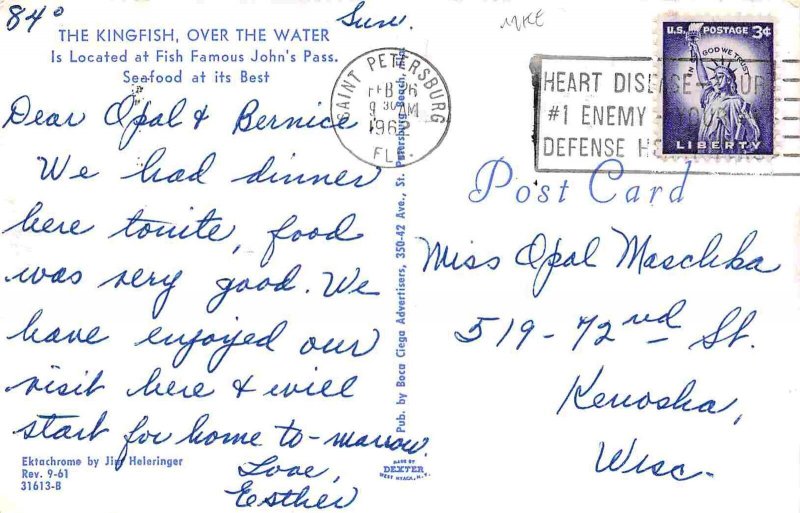 84° Sun.
MKE
THE KINGFISH, OVER THE WATER
Is Located at Fish Famous John's Pass.
Seafood at its Best
Dear Opal & Bernice
We had dinner
here tonite, food
was very good. We
have enjoyed our
visit here & will
start for home to-morrow.
Love,
Esther
Ektachrome by Jim Heleringer
Rev. 9-61
31613-B
Pub. by Boca Ciega Advertisers, 350-42 Ave., St. Petersburg Beach,
MADE BY
DEXTER
WEST NYACK, N.Y.
SAINT PETERSBURG
FEB 26
9 30 AM
1962
FLA.
HEART DISEASE-YOUR
#1 ENEMY-YOUR
DEFENSE
U.S. POSTAGE 3¢
IN GOD WE TRUST
LIBERTY
Post Card
Miss Opal Maschka
519-72nd St.
Kenosha,
Wisc.